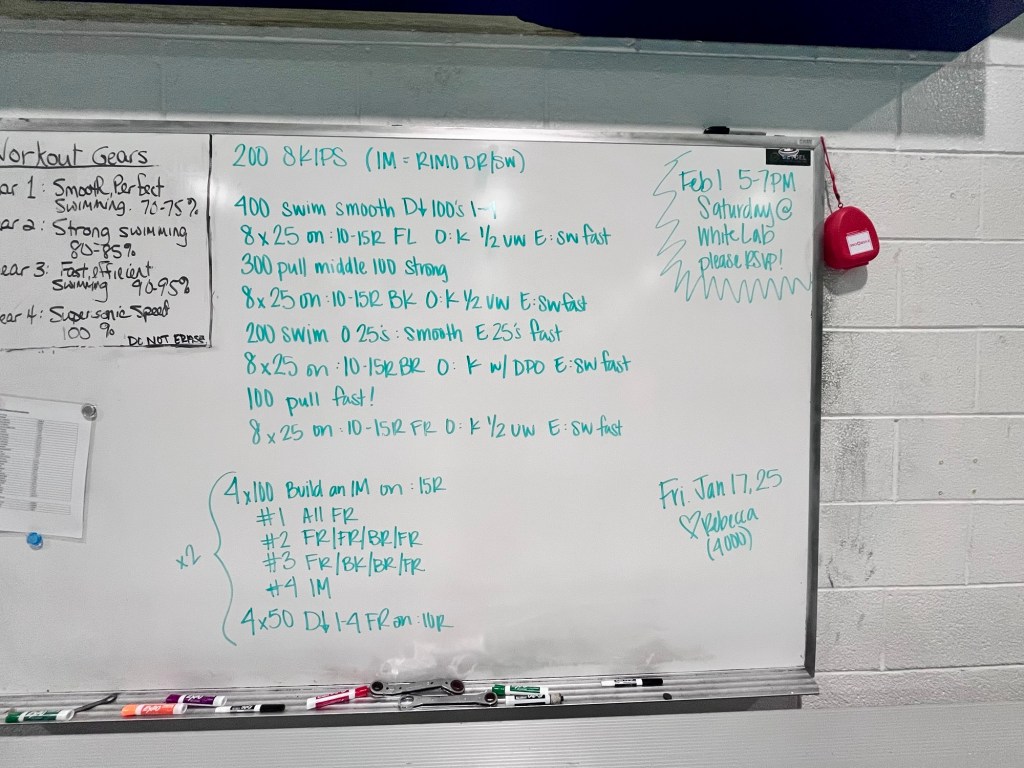 Workout Gears
ar 1: Smooth, Perfect
Swimming. 70-75%
ar 2: Strong swimming
80-85%
ear 3: Fast, efficient
swimming 90-95%
ear 4: Supersonic Speed
100 %
DO NOT ERASE
200 SKIPS (IM = RIMO DR/SW)
400 swim smooth D↓ 100's 1-
8 x 25 on :10-15R FL O: K 1/2 UW E: SW fast
300 pull middle 100 strong
8 x 25 on :10-15R BK O: K 1/2 UW E: SW fast
200 swim O 25's: smooth E 25's fast
8 x 25 on :10-15R BR O: K w/ DPO E: SW fast
100 pull fast!
8 x 25 on :10-15R FR O: K 1/2 UW E: SW fast
x2
4 x 100 Build an IM on :15R
#1 All FR
#2 FR/FR/BR/FR
#3 FR/BK/BR/FR
#4 IM
4 x 50 D↓ 1-4 FR on :10R
Feb 1 5-7PM
Saturday @
White Lab
please RSVP!
Fri. Jan 17, 25
♡ Rebecca
(4000)